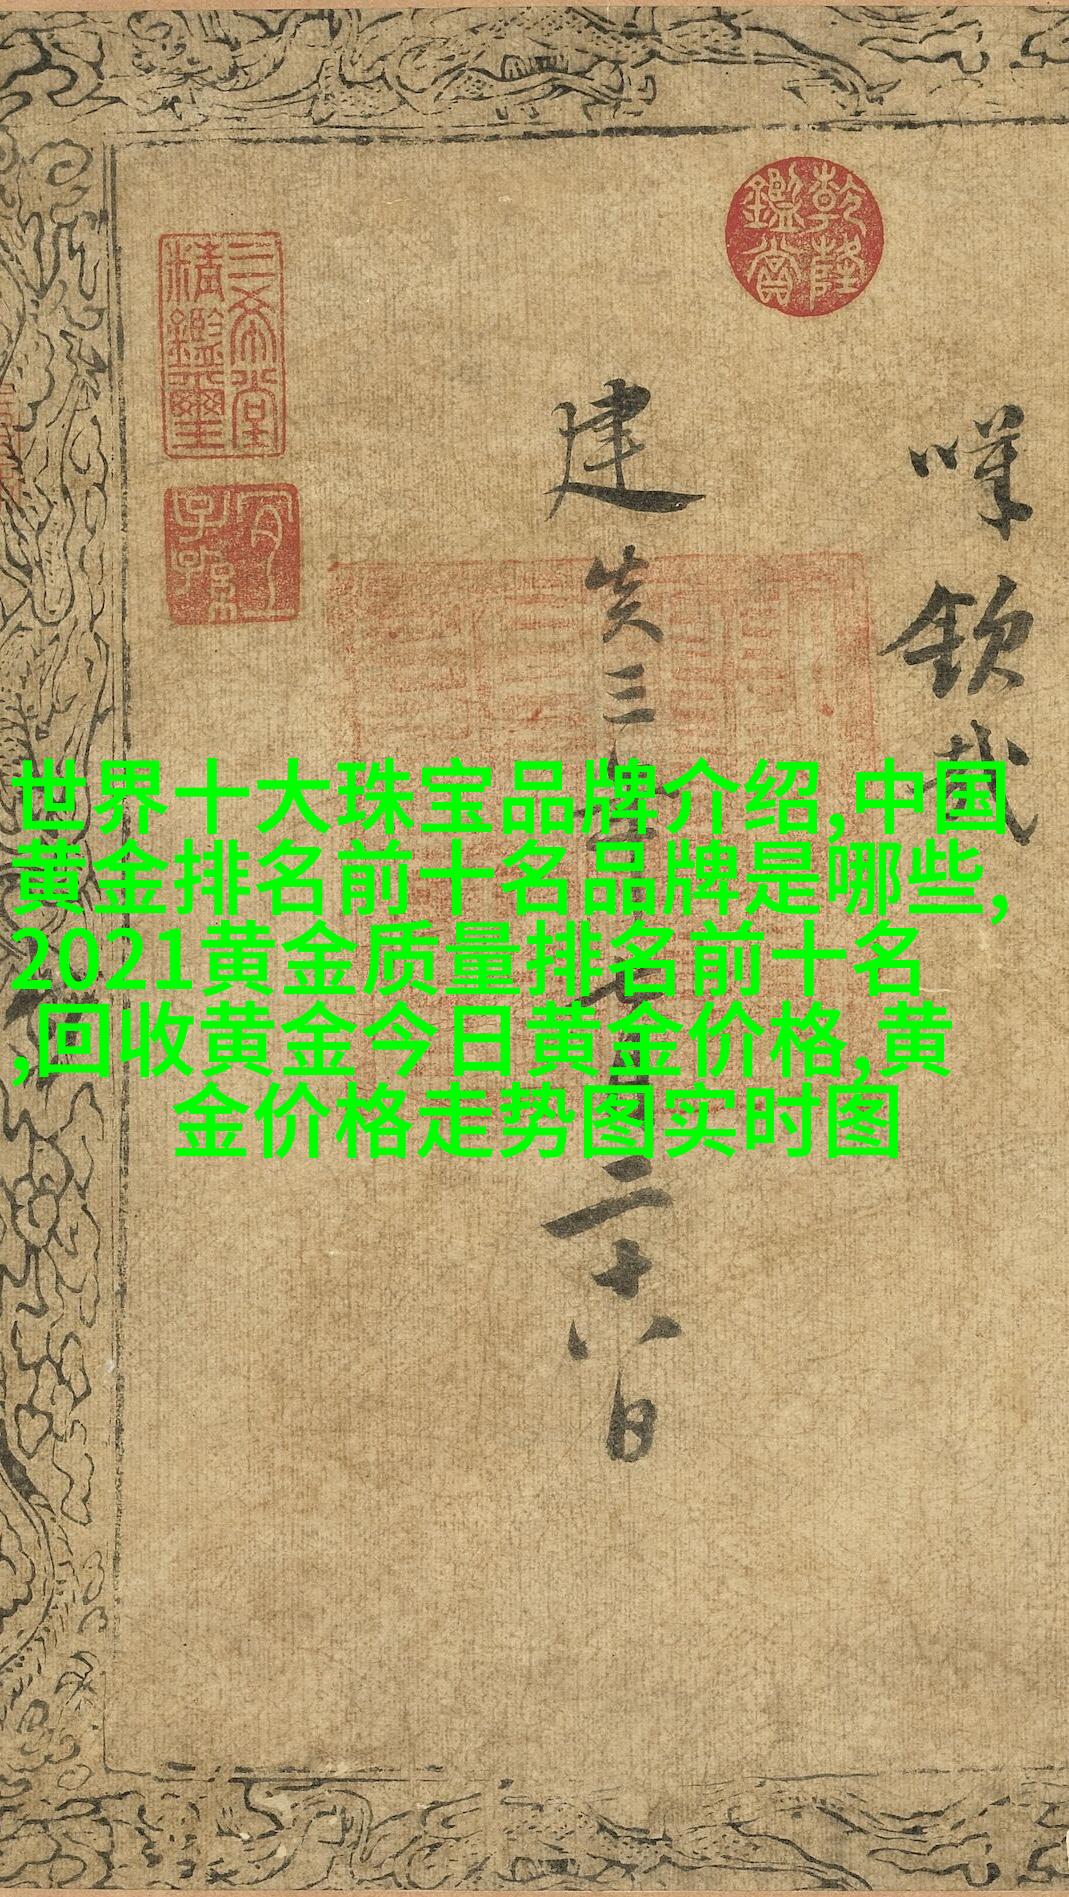 世界十大珠宝品牌介绍,中国
黄金排名前十名品牌是哪些,
2021黄金质量排名前十名
,回收黄金今日黄金价格,黄
金价格走势图实时图
乾隆鑑賞
三希堂精鑑璽
宜子孫
建炎三年七月二十八日